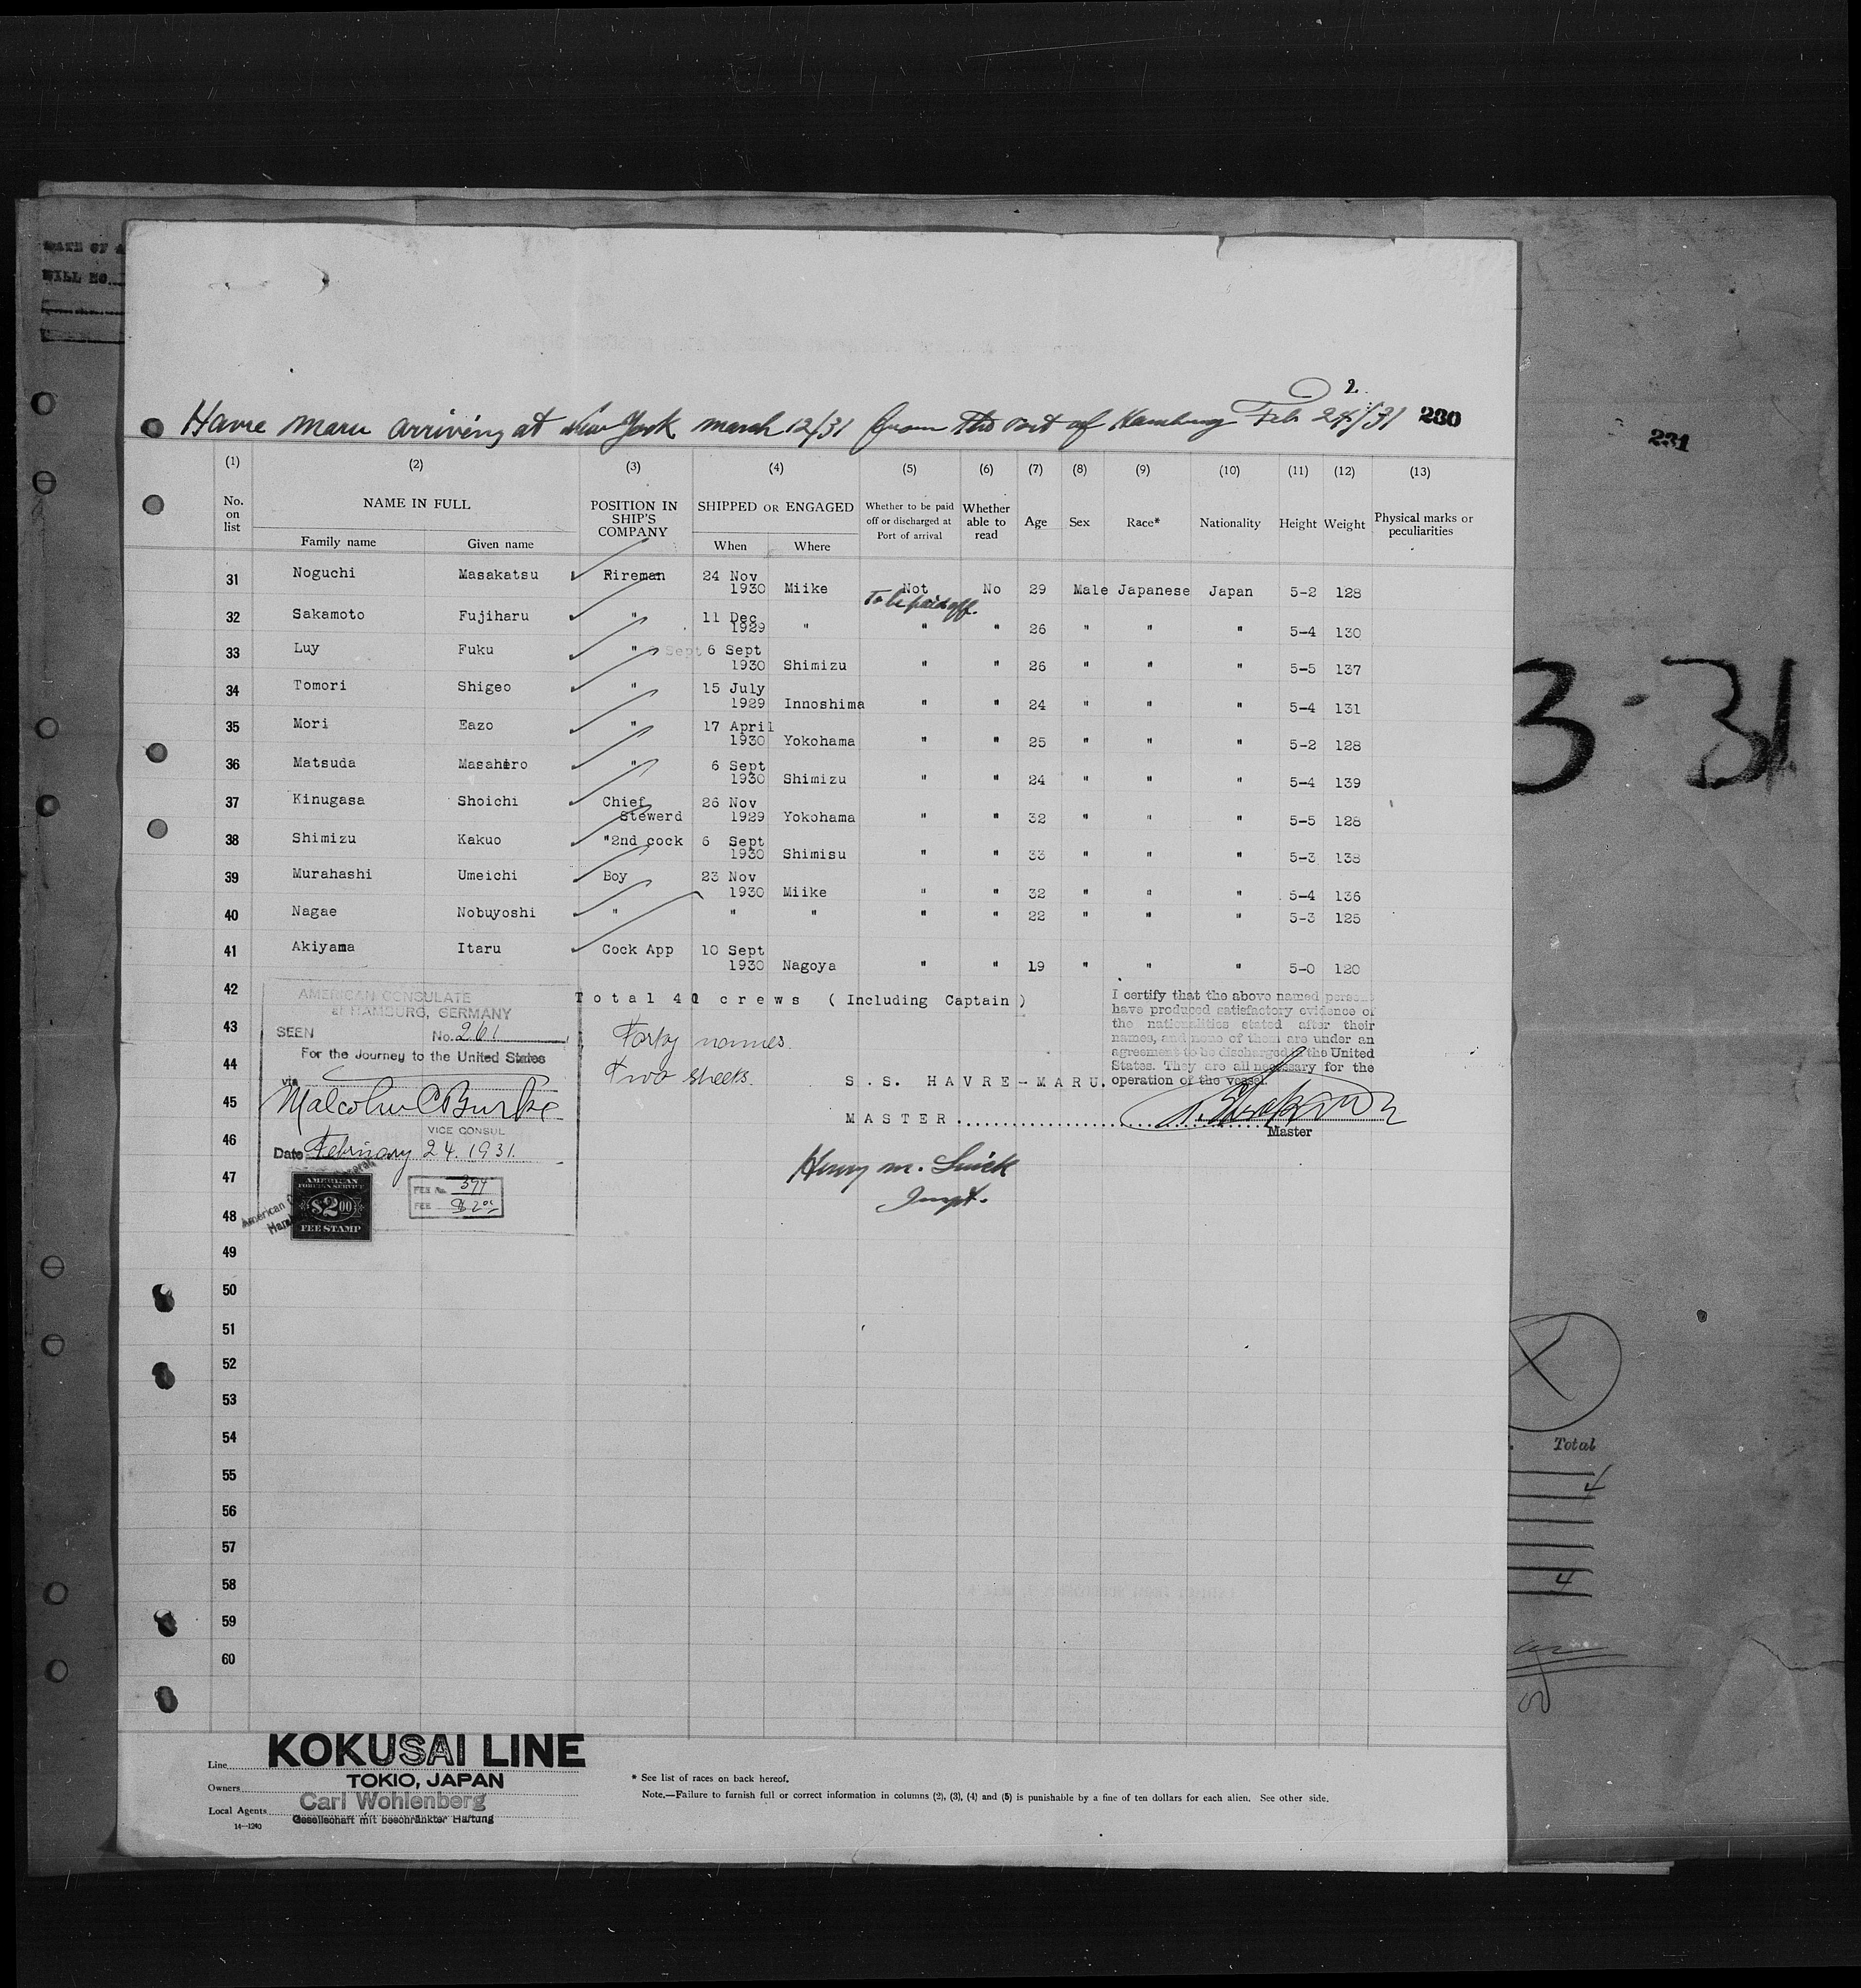 DATE OF
Havre Maru arriving at New York march 12/31 from the Port of Hamburg Feb 24/31 2 230
231
(1) (2) (3) (4) (5) (6) (7) (8) (9) (10) (11) (12) (13)
No. on list NAME IN FULL POSITION IN SHIP'S COMPANY SHIPPED OR ENGAGED Whether to be paid off or discharged at Port of arrival Whether able to read Age Sex Race* Nationality Height Weight Physical marks or peculiarities
Family name Given name When Where
31 Noguchi Masakatsu Rireman 24 Nov 1930 Miike Not To be paid off. No 29 Male Japanese Japan 5-2 128
32 Sakamoto Fujiharu " 11 Dec 1929 " " " 26 " " " 5-4 130
33 Luy Fuku " Sept 6 Sept 1930 Shimizu " " 26 " " " 5-5 137
34 Tomori Shigeo " 15 July 1929 Innoshima " " 24 " " " 5-4 131
35 Mori Eazo " 17 April 1930 Yokohama " " 25 " " " 5-2 128
36 Matsuda Masahiro " 6 Sept 1930 Shimizu " " 24 " " " 5-4 139
37 Kinugasa Shoichi Chief Stewerd 26 Nov 1929 Yokohama " " 32 " " " 5-5 128
38 Shimizu Kakuo "2nd cock 6 Sept 1930 Shimisu " " 33 " " " 5-3 138
39 Murahashi Umeichi Boy 23 Nov 1930 Miike " " 32 " " " 5-4 136
40 Nagae Nobuyoshi " " " " " 22 " " " 5-3 125
41 Akiyama Itaru Cock App 10 Sept 1930 Nagoya " " 19 " " " 5-0 120
42
43
44
45
46
47
48
49
50
51
52
53
54
55
56
57
58
59
60
AMERICAN CONSULATE
at HAMBURG, GERMANY
SEEN No. 261
For the Journey to the United States
via
Malcolm C Burke
VICE CONSUL
Date February 24. 1931.
AMERICAN
FOREIGN SERVICE
$2 00
FEE STAMP
FEE No. 394
FEE $2.00
Total 41 crews (Including Captain)
Forty names.
Two sheets.
S.S. HAVRE-MARU.
MASTER
I certify that the above named persons
have produced satisfactory evidence of
the nationalities stated after their
names, and none of them are under an
agreement to be discharged in the United
States. They are all necessary for the
operation of the vessel.
Master
Henry M.
Inspt.
3-31
Total
4
4
Line KOKUSAI LINE
Owners TOKIO, JAPAN
Local Agents Carl Wohlenberg
Gesellschaft mit beschränkter Haftung
14-1240
* See list of races on back hereof.
Note.—Failure to furnish full or correct information in columns (2), (3), (4) and (5) is punishable by a fine of ten dollars for each alien. See other side.